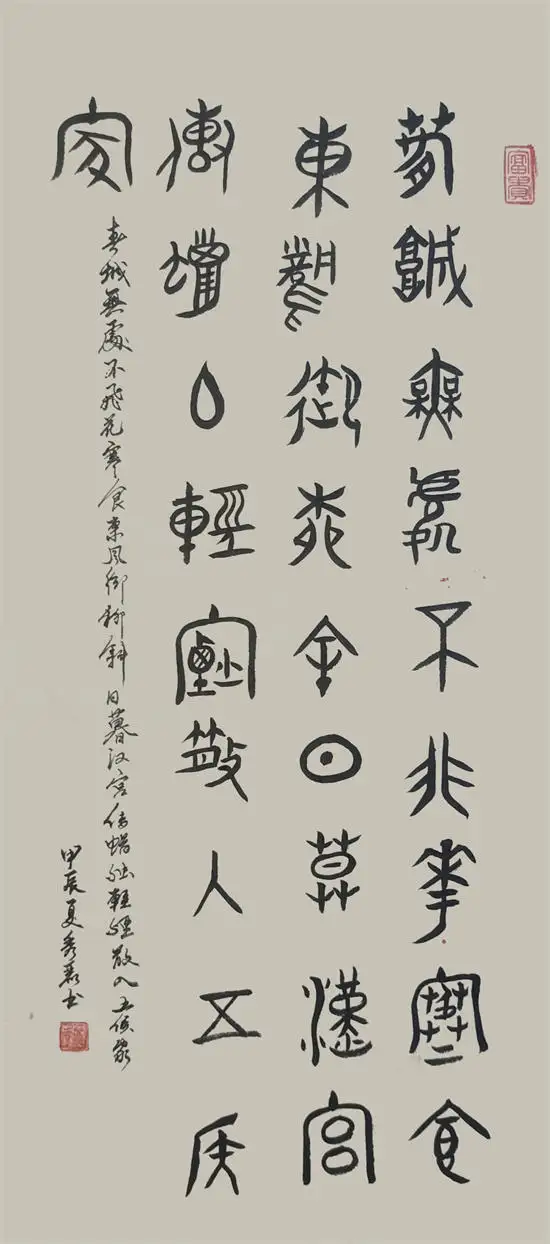 富貴
春城無處不飛花寒食
東風御柳斜日暮漢宮
傳蠟燭輕煙散入五侯
家
春城無處不飛花寒食東風御柳斜日暮汉宫傳蜡烛輕煙散入五侯家
甲辰夏秀书